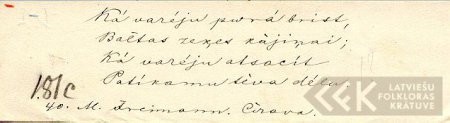 Kā varēju purā brist,
Baltas zeķes kājiņai;
Ka varēju atsacīt
Patīkamu tēva dēlu.
181c
40. M. Freimann. Cīrava.
LATVIEŠU
FOLKLORAS
KRĀTUVE